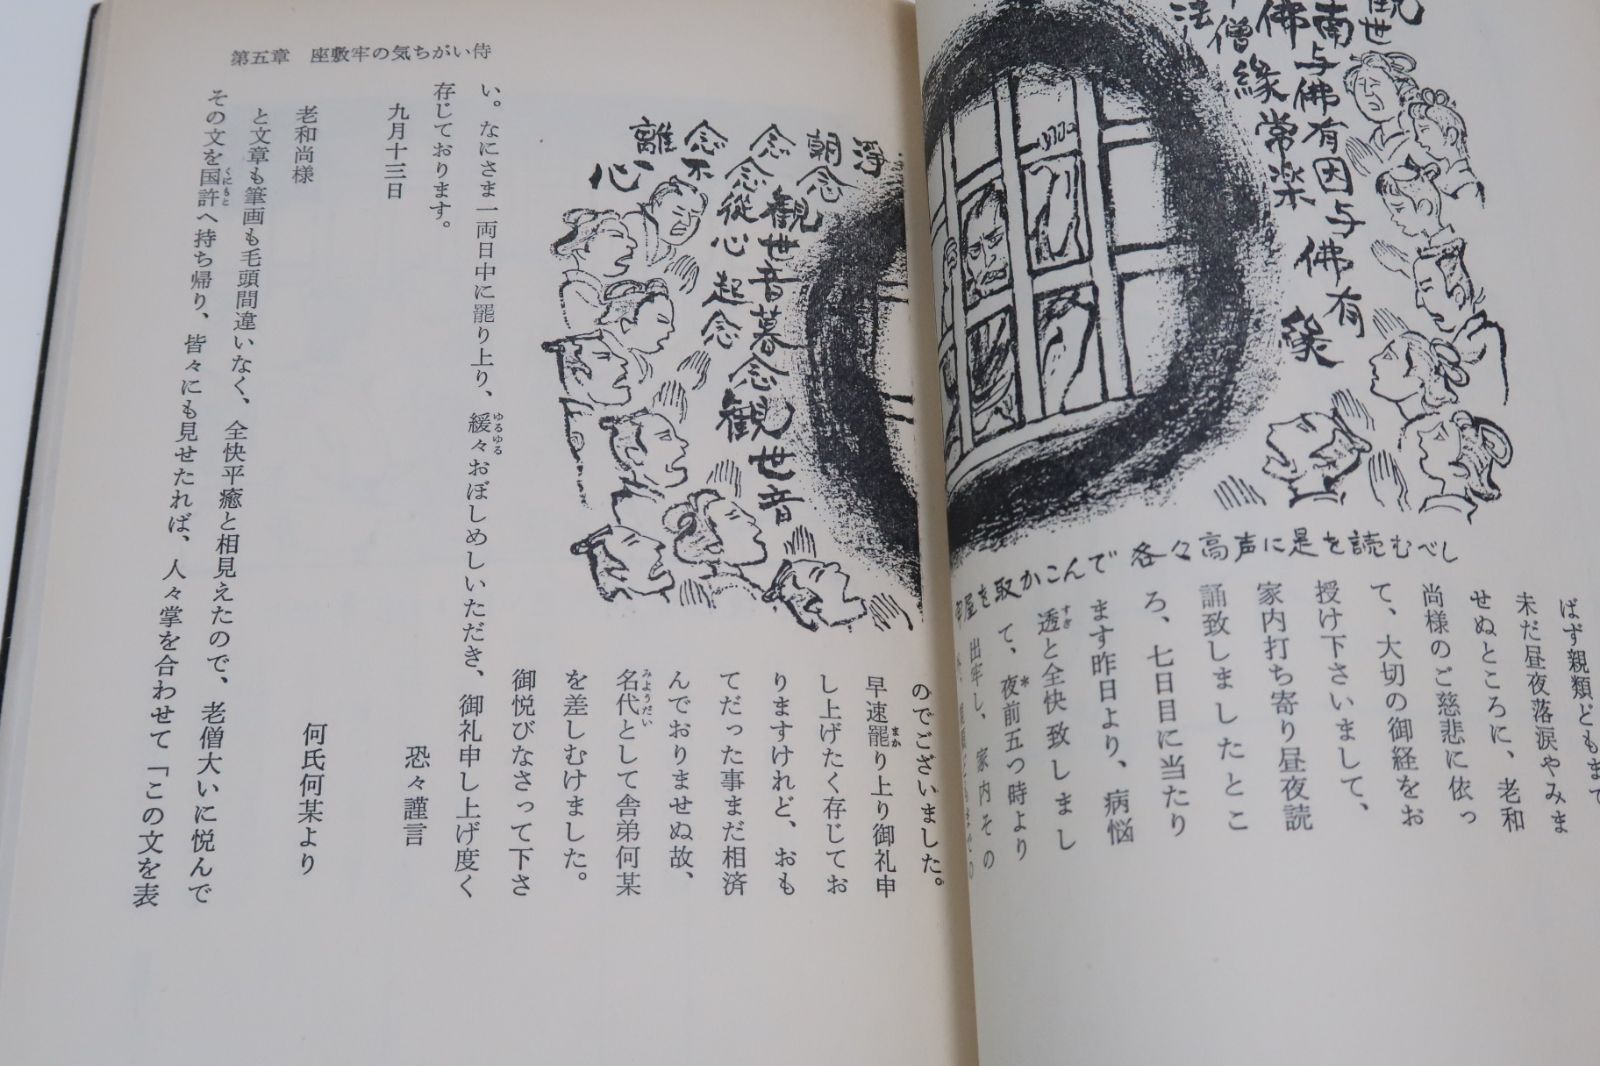 観世
南
与佛有因与佛有
緣
佛
僧緣常楽
法
各々高声に是を読むべし
屋を取かこんで
ばず親類どもまで
未だ昼夜落涙やみま
せぬところに、老和
尚様のご慈悲に依っ
て、大切の御経をお
授け下さいまして、
家内打ち寄り昼夜読
誦致しましたとこ
ろ、七日目に当たり
ます昨日より、病悩
透と全快致しまし
て、夜前五つ時より
出牢し、家内その
第五章 座敷牢の気ちがい侍
浄
朝念
觀世音暮念觀世音
念念從心起念
念不
離心
のでございました。
早速罷り上り御礼申
し上げたく存じてお
りますけれど、おも
てだった事まだ相済
んでおりませぬ故、
名代として舎弟何某
を差しむけました。
御悦びなさって下さ
い。なにさま一両日中に罷り上り、緩々おぼしめしいただき、御礼申し上げ度く
存じております。
恐々謹言
九月十三日
何氏何某より
老和尚様
と文章も筆画も毛頭間違いなく、全快平癒と相見えたので、老僧大いに悦んで
その文を国許へ持ち帰り、皆々にも見せたれば、人々掌を合わせて「この文を表